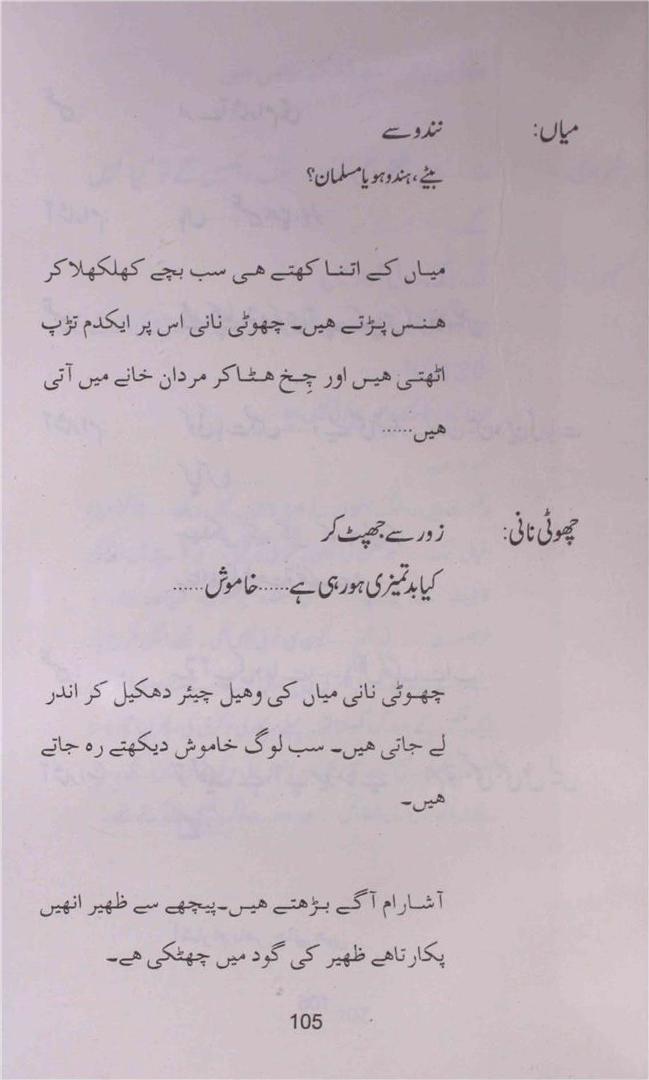 میاں: نندو سے
بیٹے، ہندو ہو یا مسلمان؟
میاں کے اتنا کہتے ہی سب بچے کھلکھلا کر
ہنس پڑتے ہیں۔ چھوٹی نانی اس پر ایکدم تڑپ
اٹھتی ہیں اور چِخ ہٹا کر مردان خانے میں آتی
ہیں......
چھوٹی نانی: زور سے جھپٹ کر
کیا بدتمیزی ہو رہی ہے......خاموش......
چھوٹی نانی میاں کی وہیل چیئر دھکیل کر اندر
لے جاتی ہیں۔ سب لوگ خاموش دیکھتے رہ جاتے
ہیں۔
آشارام آگے بڑھتے ہیں۔پیچھے سے ظہیر انہیں
پکارتاہے ظہیر کی گود میں چھٹکی ہے۔
105